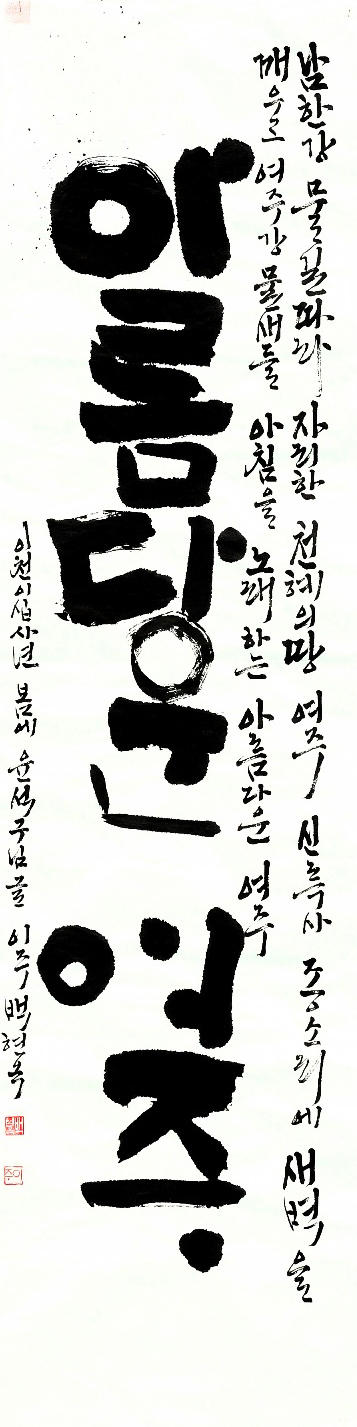 남한강 물길따라 자리한 천혜의땅 여주 신륵사 종소리에 새벽을
깨우고 여주강 물새들 아침을 노래하는 아름다운 여주
아름다운 여주
이천이십사년 봄에 윤석구님글 이주 백현옥